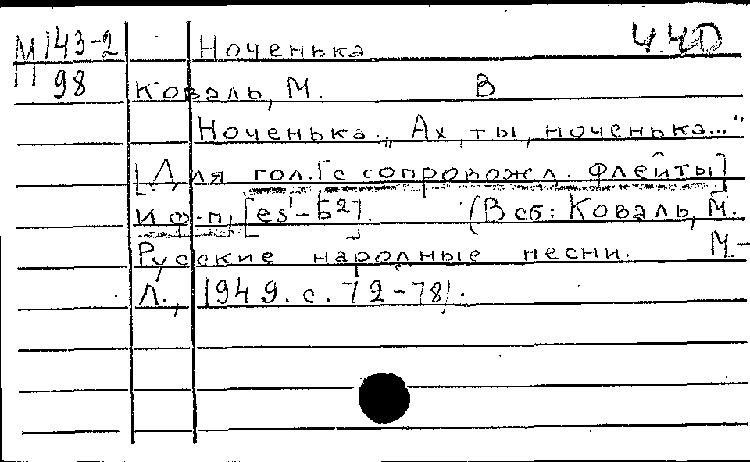 М 143-2 Ноченька 4.40
П 98 Коваль, М. В
Ноченька. „Ах, ты, ноченька..."
[Для гол. [с сопровожд. флейты]
и ф-п. [es¹-b²]. (В сб: Коваль, М.
Русские народные песни. М.-
Л., 1949. с. 72-78).